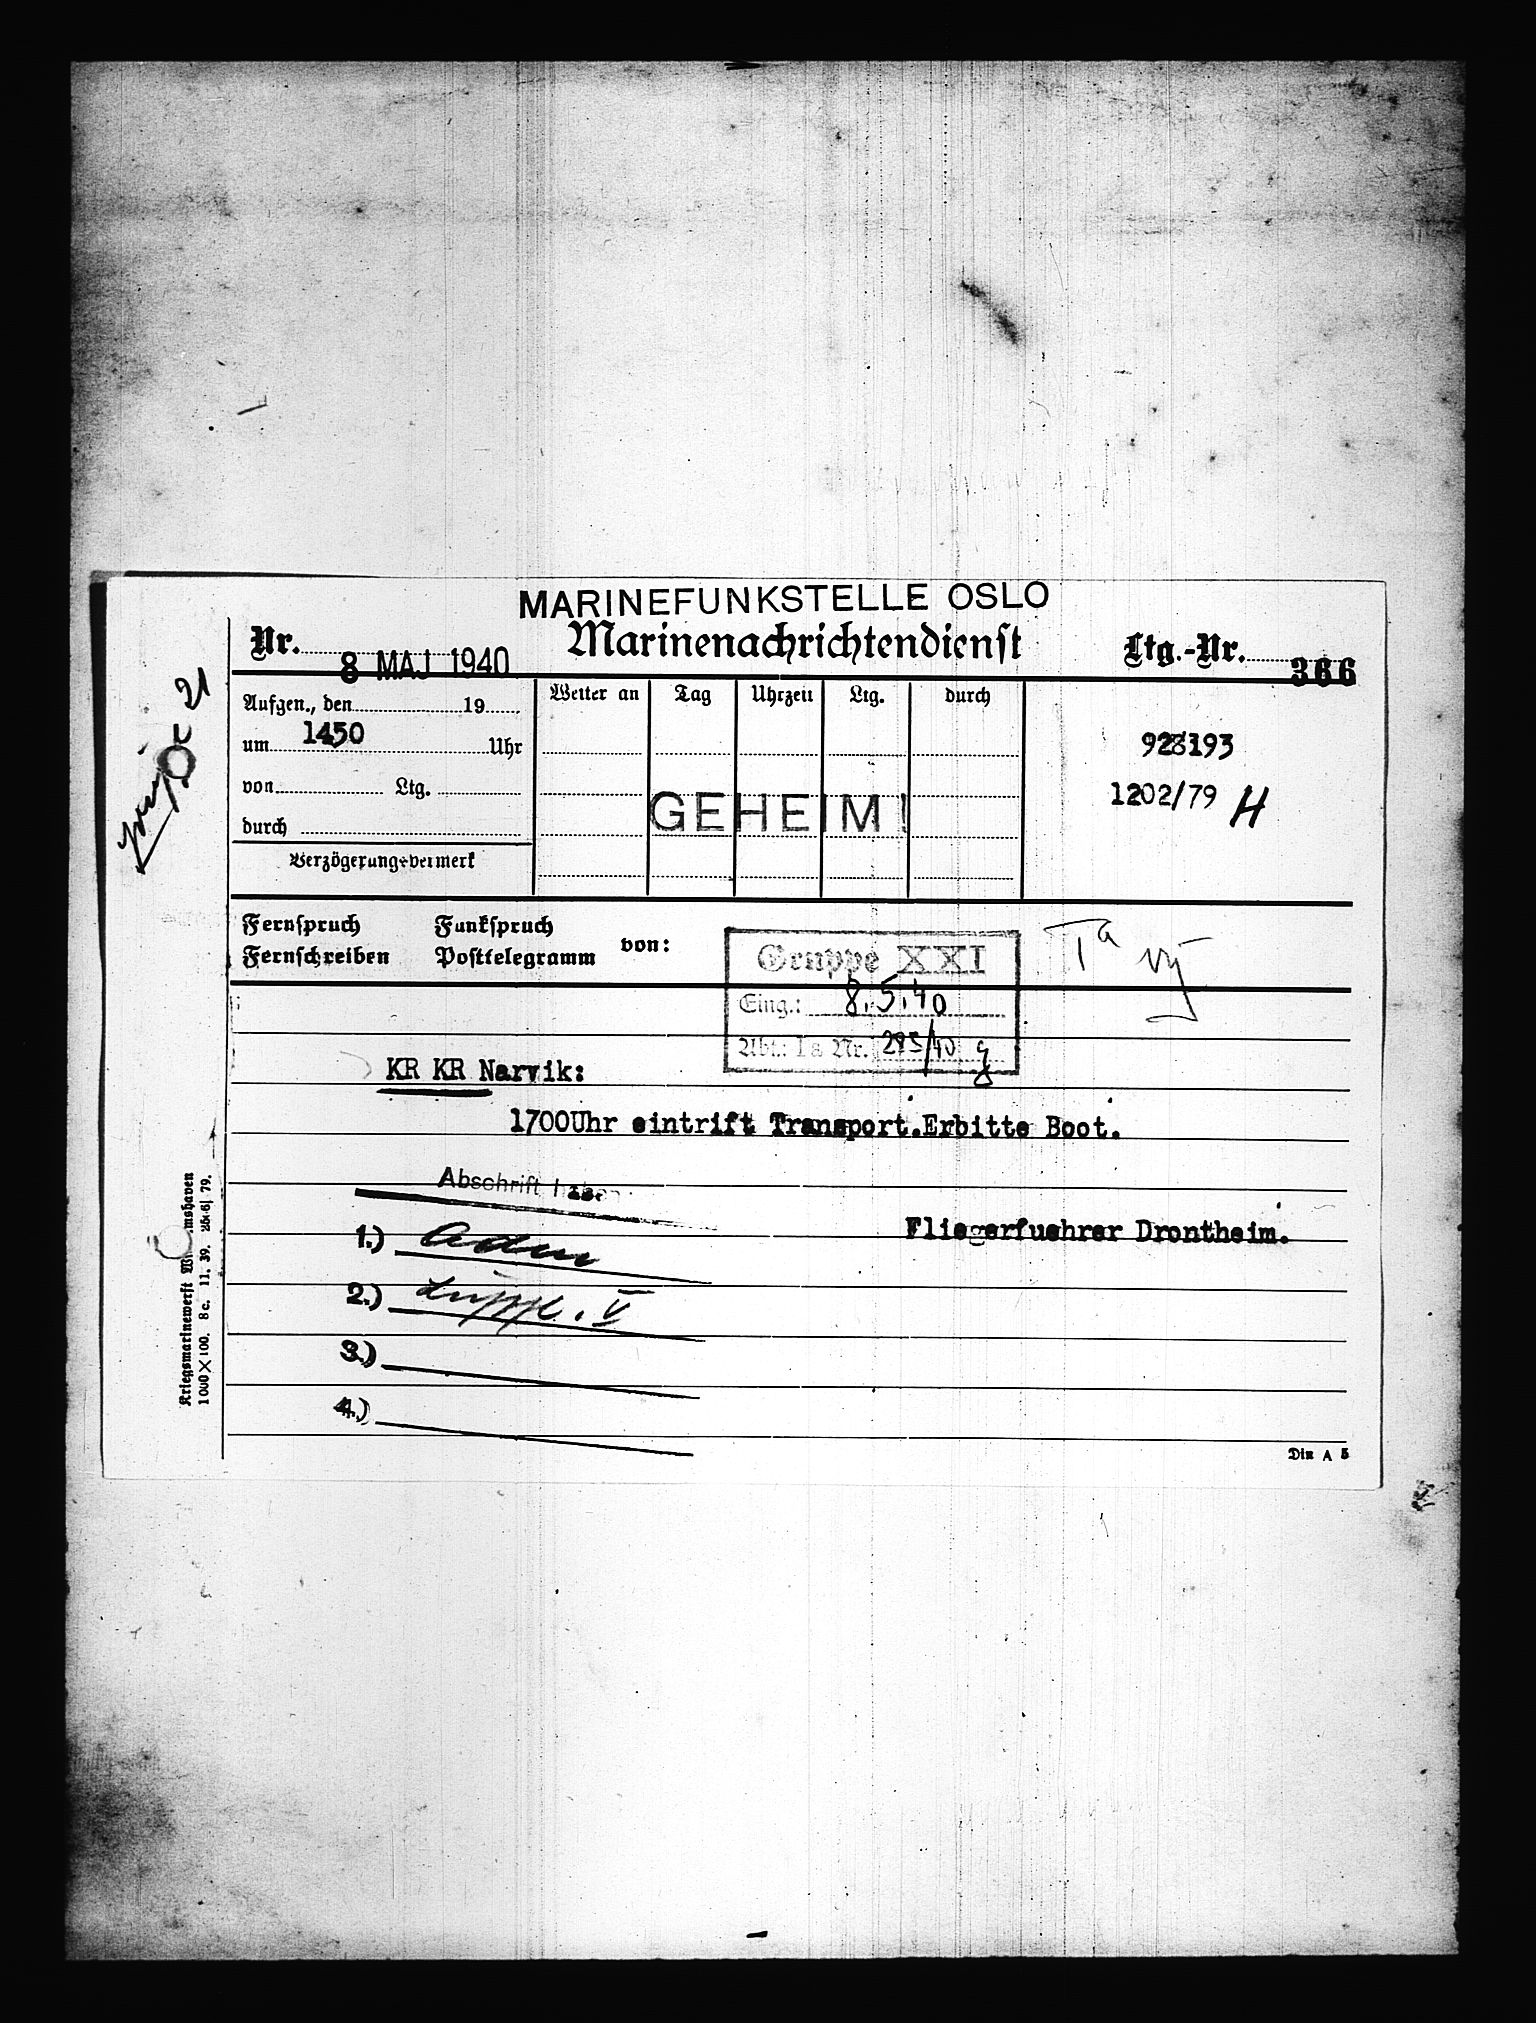 MARINEFUNKSTELLE OSLO
Nr. 8 MAJ 1940 Marinenachrichtendienst Ltg.-Nr. 366
Aufgen., den 19
um 1450 Uhr
von Ltg.
durch
Verzögerungsvermerk
Weiter an Tag Uhrzeit Ltg. durch
GEHEIM!
928193
1202/79 H
Fernspruch Funkspruch
Fernschreiben Posttelegramm von:
Gruppe XXI
Eing.: 8.5.40
Abt.: Ia Nr. 295/40 g
Ia
KR KR Narvik:
1700Uhr eintrift Transport.Erbitte Boot.
Abschrift haben
Fliegerfuehrer Drontheim.
1.) Adm
2.) Luftfl. V
3.)
4.)
Kriegsmarinewerft Wilhelmshaven
1000×100. 8c. 11. 39. 79.
Din A 5
21